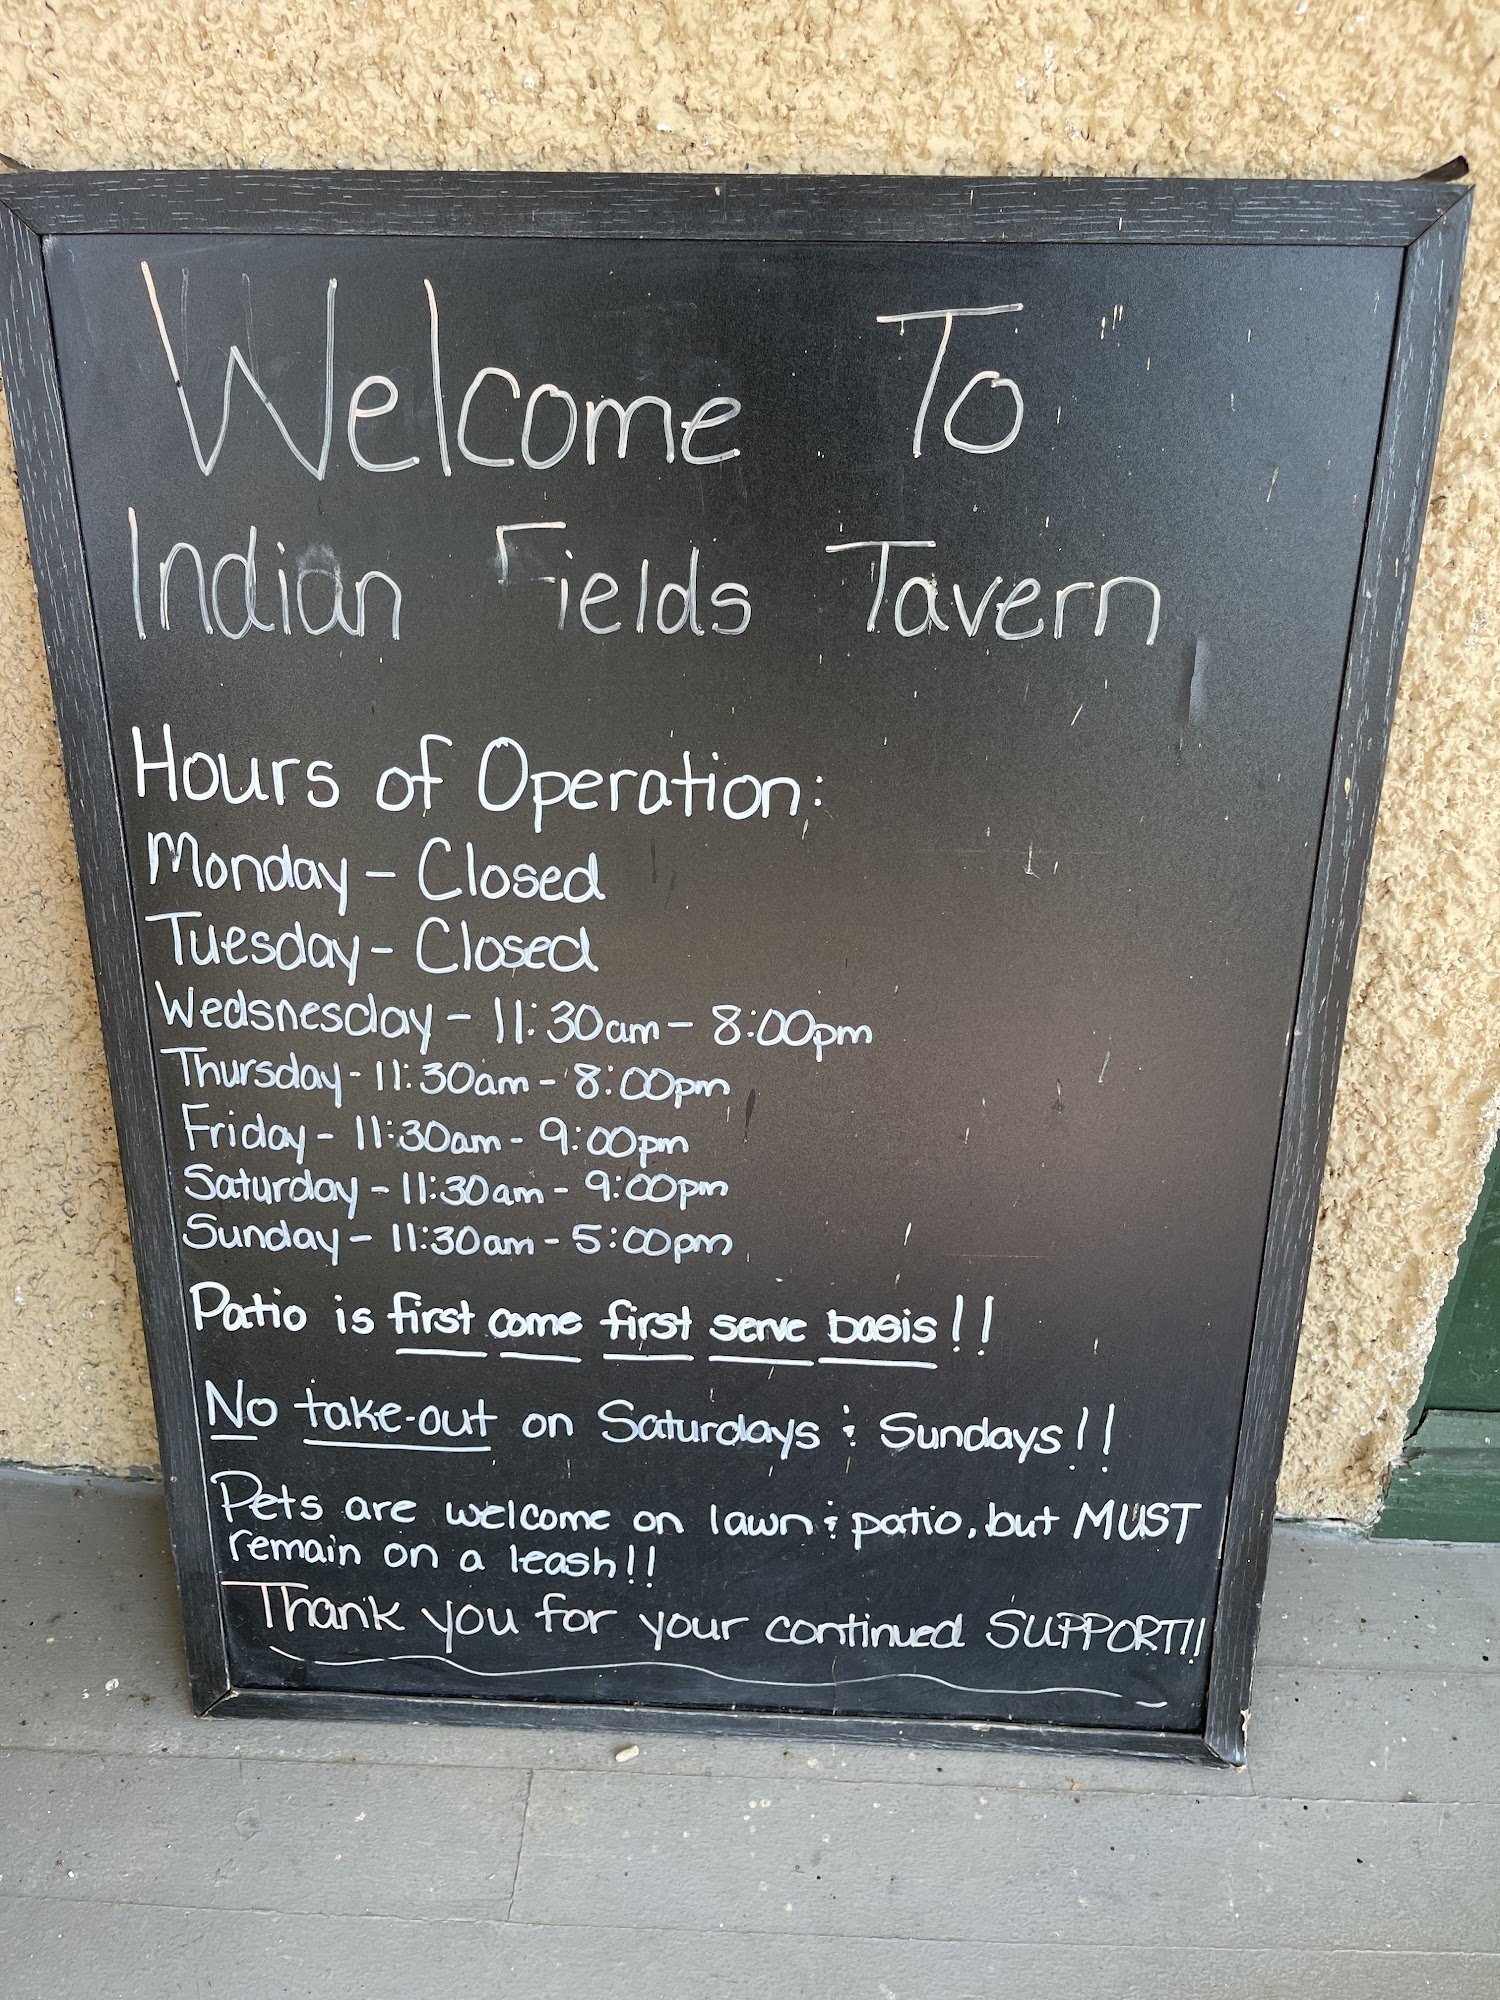 Welcome To
Indian Fields Tavern
Hours of Operation:
Monday - Closed
Tuesday - Closed
Wedsnesday - 11:30am - 8:00pm
Thursday - 11:30am - 8:00pm
Friday - 11:30am - 9:00pm
Saturday - 11:30am - 9:00pm
Sunday - 11:30am - 5:00pm
Patio is first come first serve basis!!
No take-out on Saturdays & Sundays!!
Pets are welcome on lawn & patio, but MUST
remain on a leash!!
Thank you for your continued SUPPORT!!